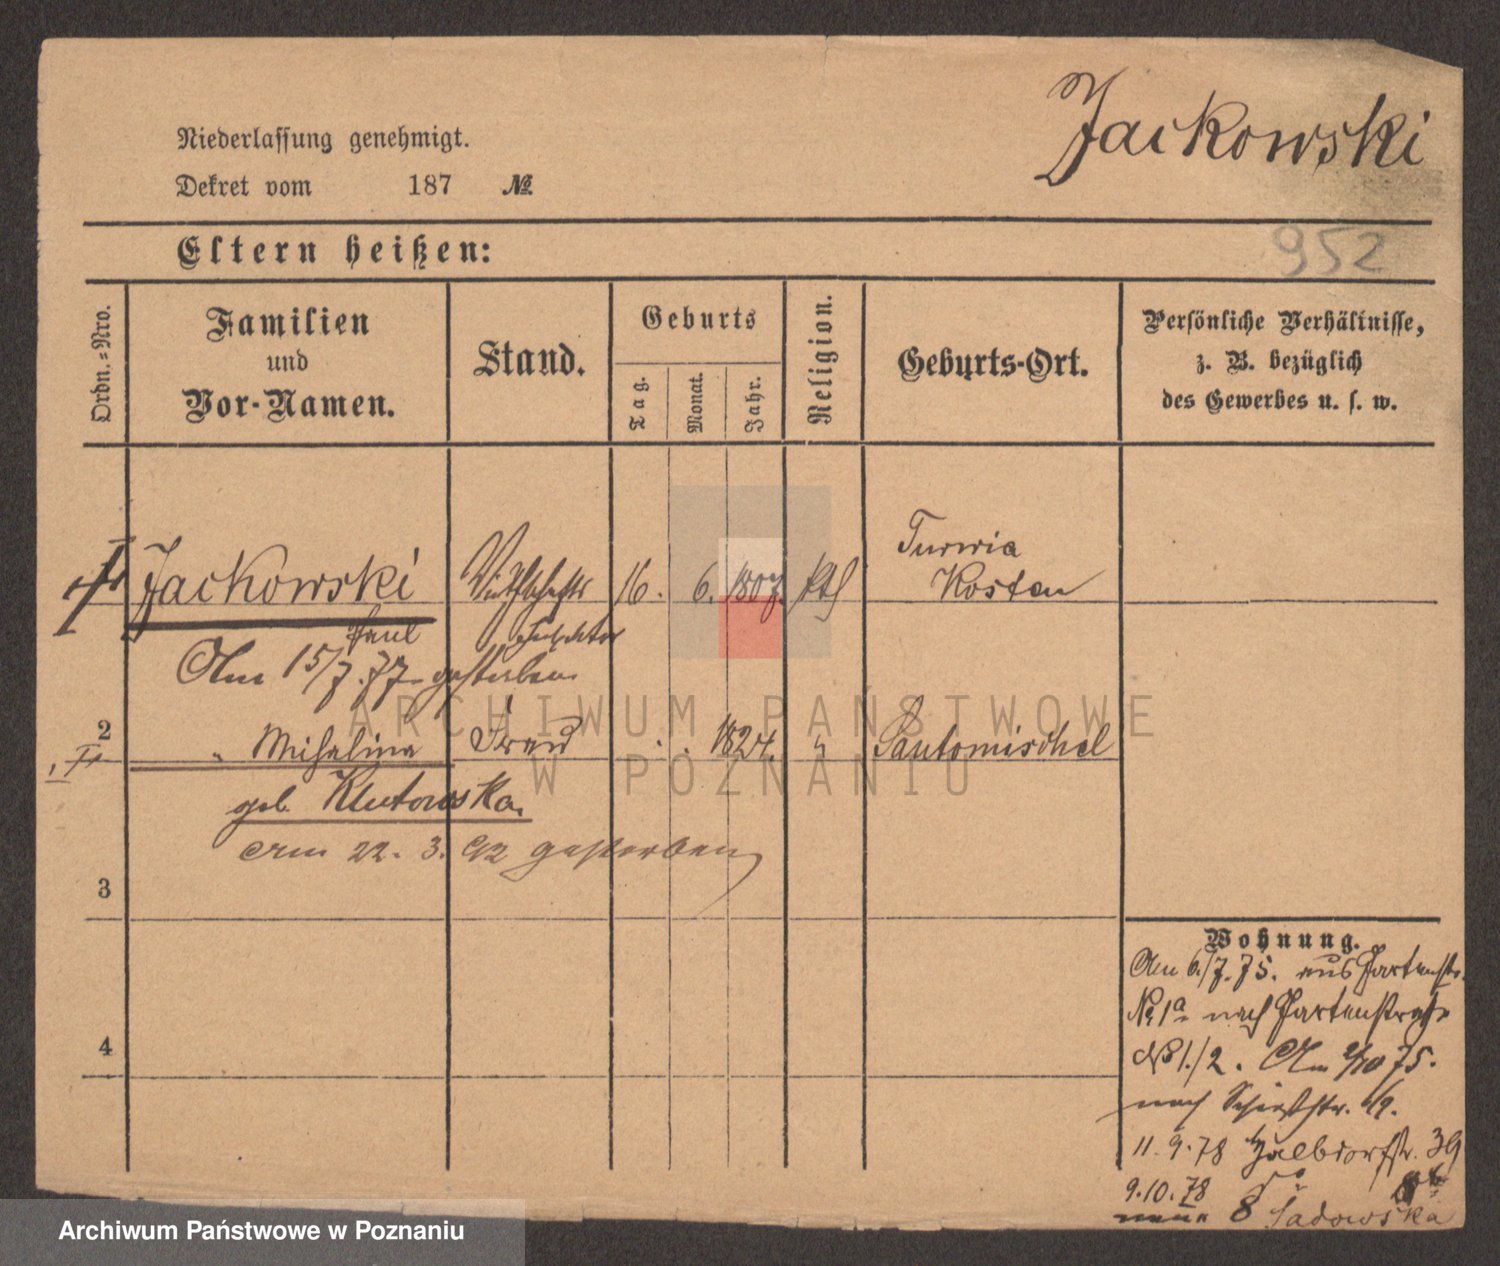 Jackowski
Niederlassung genehmigt.
Dekret vom 187 №
952
Eltern heißen:
Ordn.-Nro.
Familien
und
Vor-Namen.
Stand.
Geburts
Tag.
Monat.
Jahr.
Religion.
Geburts-Ort.
Persönliche Verhältnisse,
z. B. bezüglich
des Gewerbes u. s. w.
Jackowski Wirthschafts 16. 6. 1807. kth Turwia
Kosten
Paul Inspektor
Am 15/7. 77 gestorben
2 " Michalina Frau 1824. " Santomischel
geb. Klutowska.
Am 22. 3. 92 gestorben
3
4
Wohnung.
Am 6./7. 75. aus Gartenstr.
No 1a nach Gartenstraße
No 1./2. Am 2/10 75.
nach Schießstr. 6/9.
11. 9. 78 Halbdorfstr. 39
9. 10. 78 do
8 Sadowska
ARCHIWUM PAŃSTWOWE
W POZNANIU
Archiwum Państwowe w Poznaniu